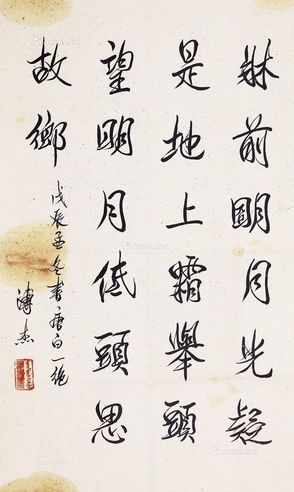 牀前明月光疑
是地上霜舉頭
望明月低頭思
故鄉
戊辰孟冬書唐白一絶
溥杰